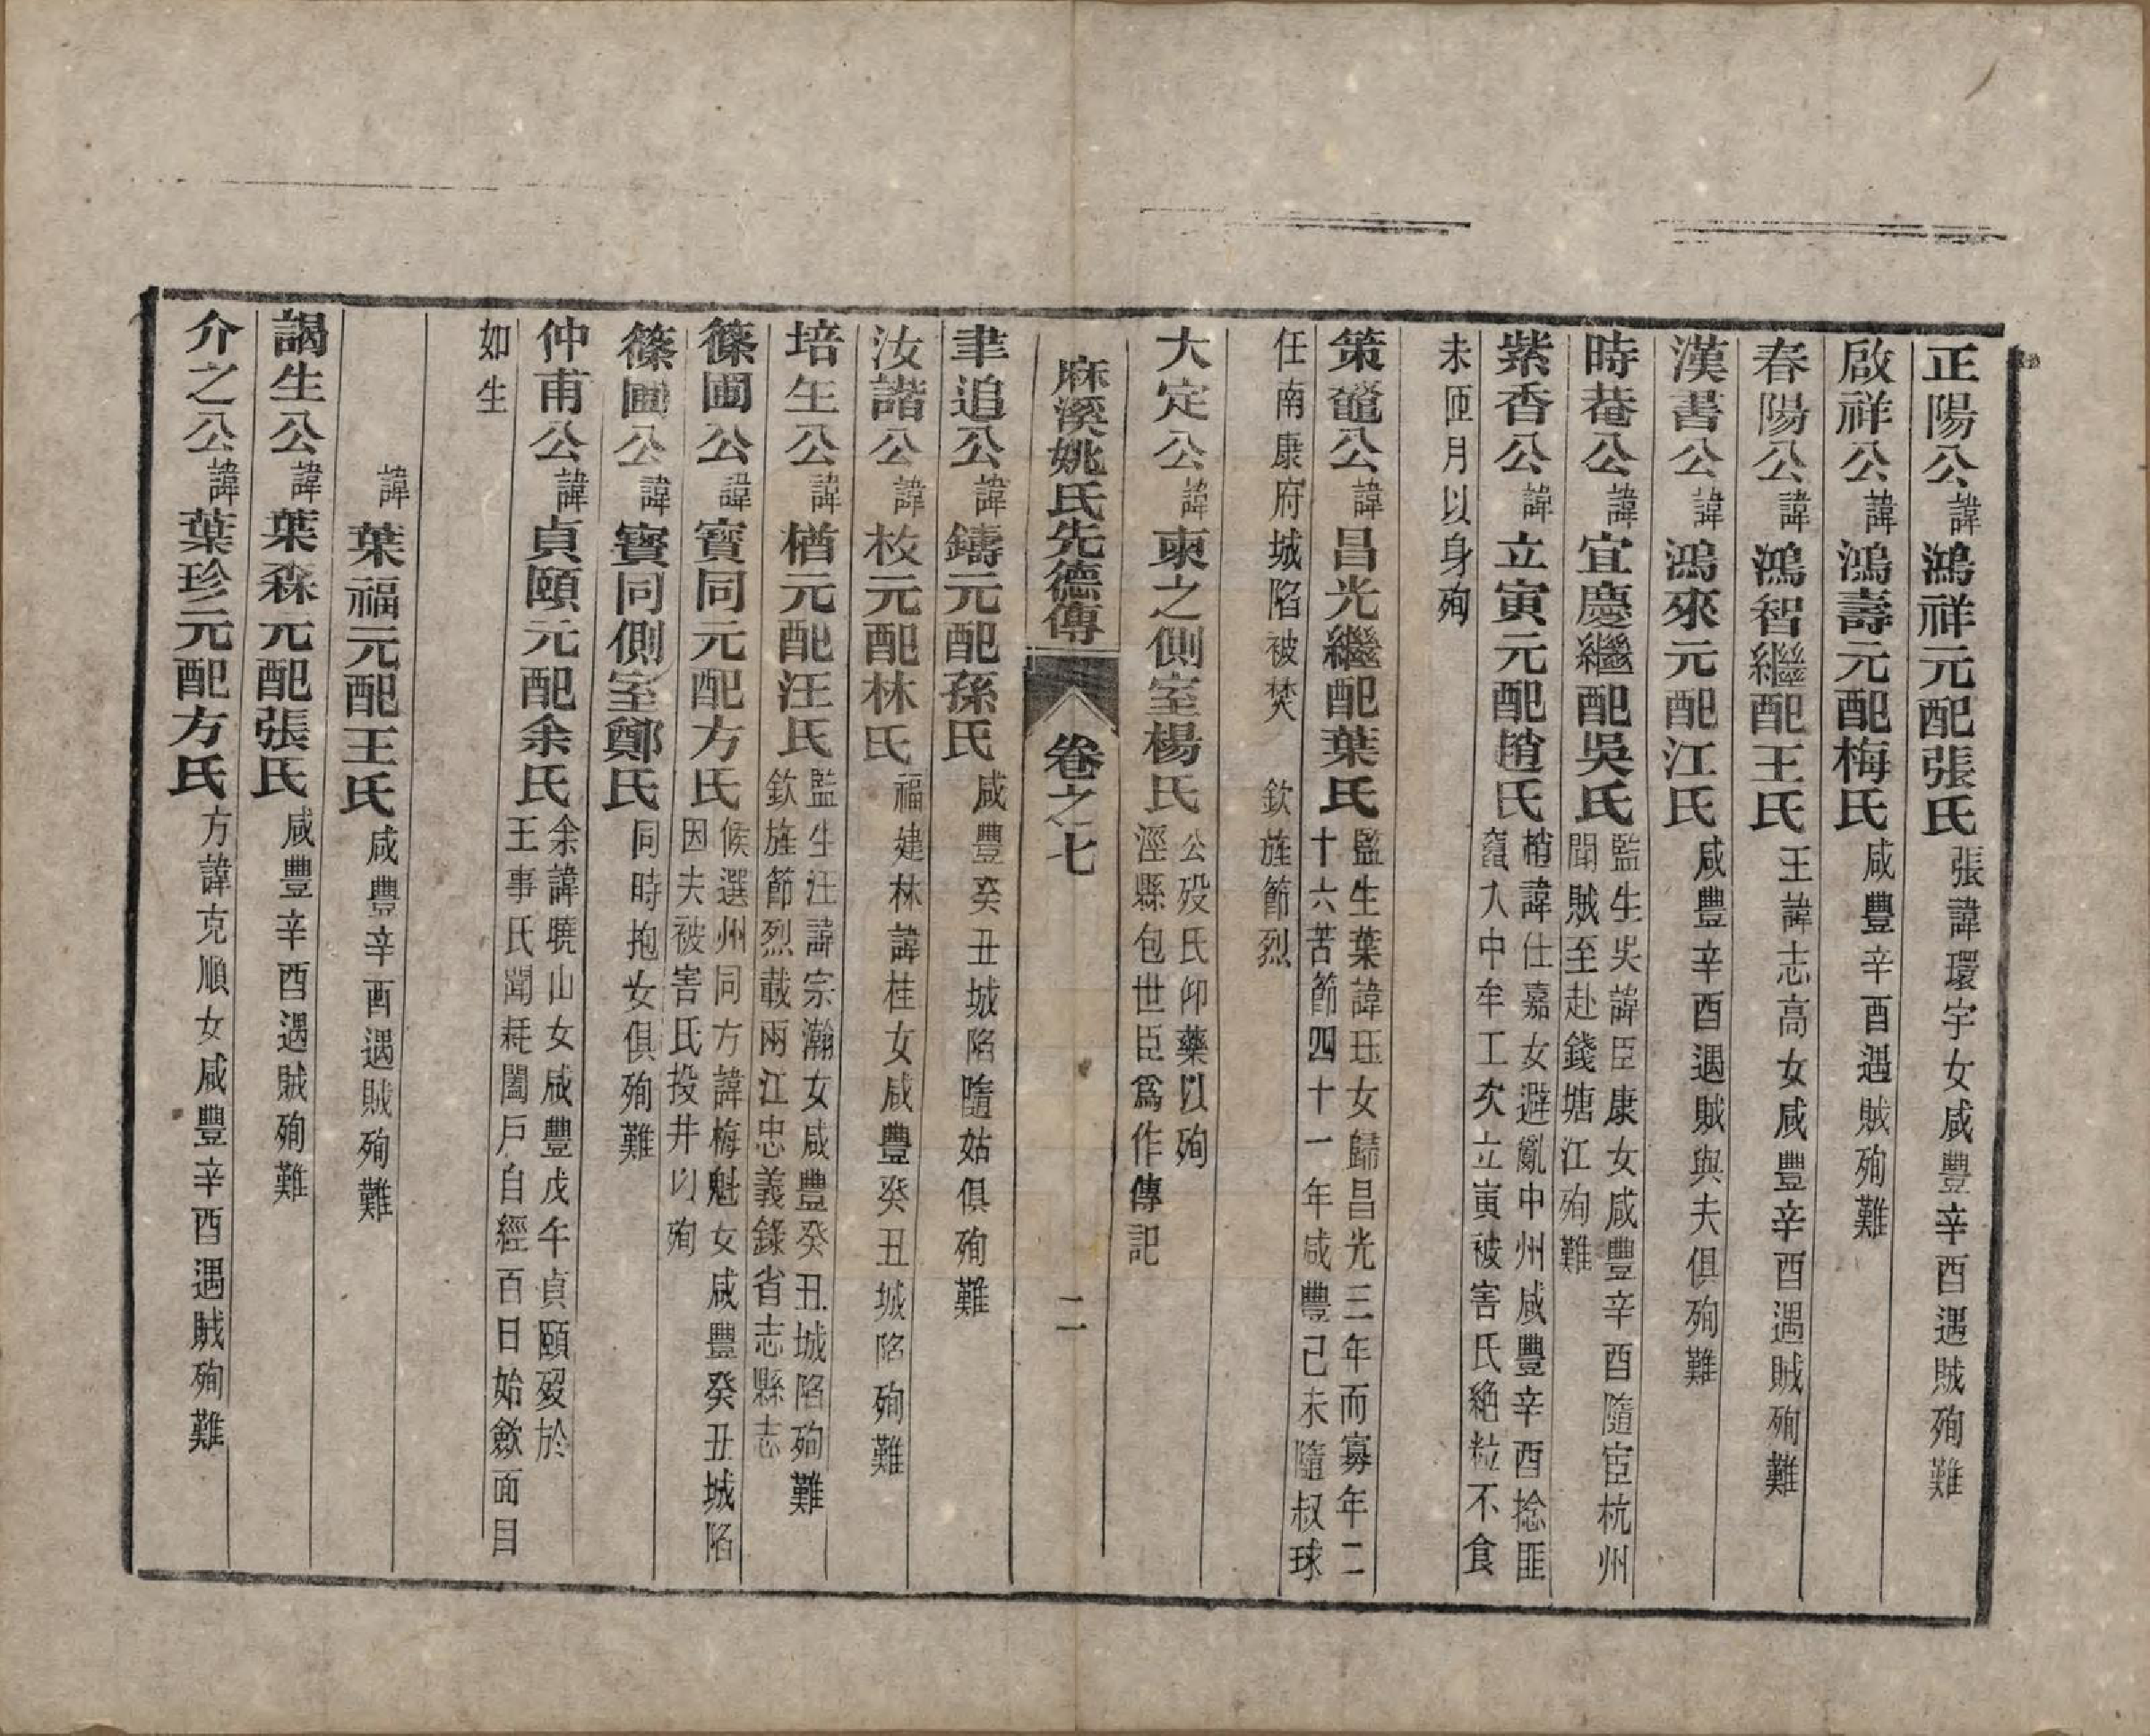 正陽公諱鴻祥元配張氏張諱環宇女咸豐辛酉遇賊殉難
啟祥公諱鴻壽元配梅氏咸豐辛酉遇賊殉難
春陽公諱鴻智繼配王氏王諱志高女咸豐辛酉遇賊殉難
漢書公諱鴻來元配江氏咸豐辛酉遇賊與夫俱殉難
時菴公諱宜慶繼配吳氏監生吳諱臣康女咸豐辛酉隨宦杭州
聞賊至赴錢塘江殉難
紫香公諱立寅元配趙氏楕諱仕嘉女避亂中州咸豐辛酉捻匪
竄入中牟工次立寅被害氏絶粒不食
未匝月以身殉
策鼇公諱昌光繼配葉氏監生葉諱珏女歸昌光三年而寡年二
十六苦節四十一年咸豐己未隨叔球
任南康府城陷被焚 欽旌節烈
大定公諱柬之側室楊氏公殁氏仰藥以殉
涇縣包世臣爲作傳記
麻溪姚氏先德傳 卷之七 二
聿追公諱鑄元配孫氏咸豐癸丑城陷隨姑俱殉難
汝諧公諱枚元配林氏福建林諱桂女咸豐癸丑城陷殉難
培生公諱楢元配汪氏監生汪諱宗瀚女咸豐癸丑城陷殉難
欽旌節烈載兩江忠義錄省志縣志
篠圃公諱寶同元配方氏候選州同方諱梅魁女咸豐癸丑城陷
因夫被害氏投井以殉
篠圃公諱寶同側室鄭氏同時抱女俱殉難
仲甫公諱貞頤元配余氏余諱曉山女咸豐戊午貞頤殁於
王事氏聞耗闔戶自經百日始斂面目
如生
諱葉福元配王氏咸豐辛酉遇賊殉難
謁生公諱葉森元配張氏咸豐辛酉遇賊殉難
介之公諱葉珍元配方氏方諱克順女咸豐辛酉遇賊殉難